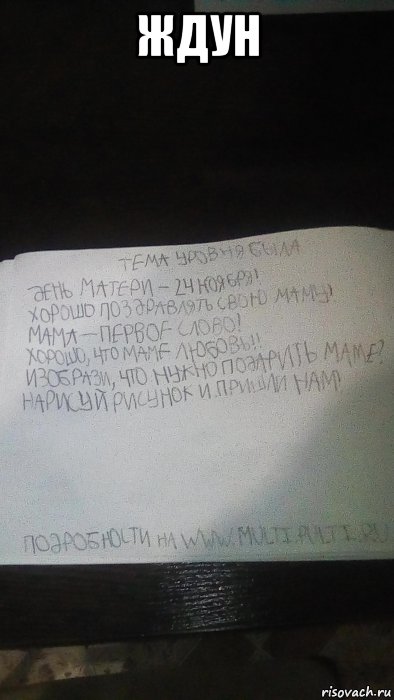 ЖДУН
ТЕМА УРОВНЯ БЫЛА
ДЕНЬ МАТЕРИ – 24 НОЯБРЯ!
ХОРОШО ПОЗДРАВЛЯТЬ СВОЮ МАМУ!
МАМА – ПЕРВОЕ СЛОВО!
ХОРОШО, ЧТО МАМЕ ЛЮБОВЬ!!
ИЗОБРАЗИ, ЧТО НУЖНО ПОДАРИТЬ МАМЕ?
НАРИСУЙ РИСУНОК И ПРИШЛИ НАМ!
ПОДРОБНОСТИ НА WWW.MULTI.PULTI.RU
risovach.ru